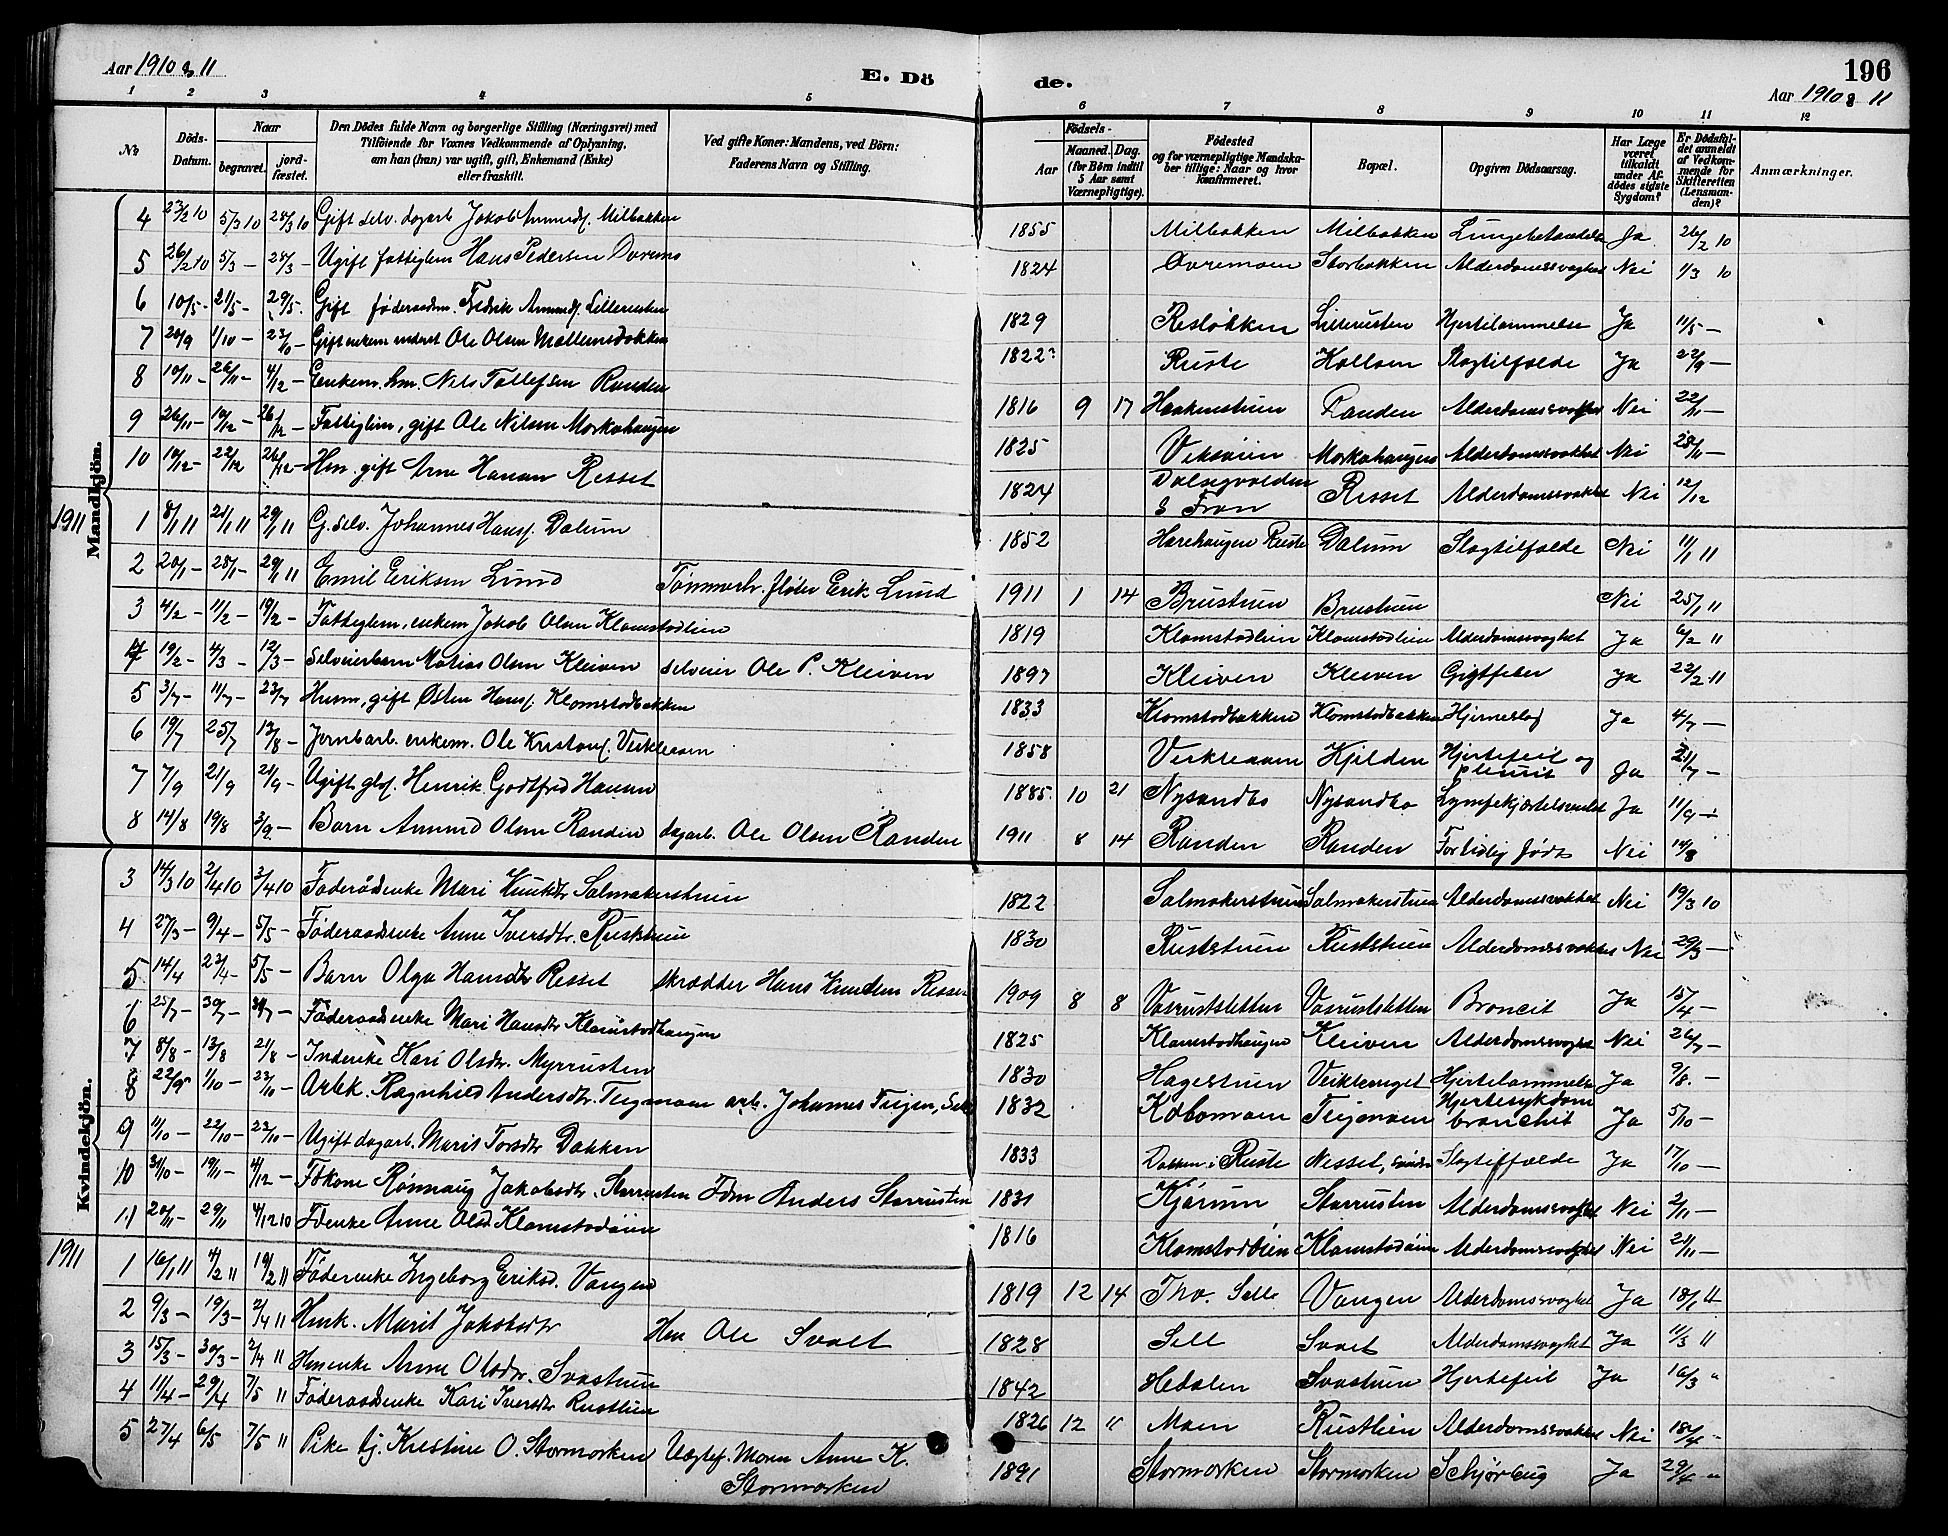 Aar 1910 & 11
E. Dö
de.
196
Aar 1910 & 11
1 2 3 4 5 6 7 8 9 10 11 12
No
Döds-Datum.
Naar
begravet.
jord-fæstet.
Den Dödes fulde Navn og borgerlige Stilling (Næringsvei) med
Tilföiende for Voxnes Vedkommende af Oplysning,
om han (hun) var ugift, gift, Enkemand (Enke)
eller fraskilt.
Ved gifte Koner: Mandens, ved Börn:
Faderens Navn og Stilling.
Födsels-
Aar
Maaned. Dag.
(for Börn indtil
5 Aar samt
Værnepligtige).
Födested
og for værnepligtige Mandska-
ber tillige: Naar og hvor
konfirmeret.
Bopæl.
Opgiven Dödsaarsag.
Har Læge
været
tilkaldt
under Af-
dödes sidste
Sygdom?
Er Dödsfal-
det anmeldt
af Vedkom-
mende for
Skifteretten
(Lensman-
den)?
Anmærkninger.
Mandkjön.
4 23/2 10 5/3 10 28/3 10 Gift selv. dagarb Jakob Amunds. Milbakken 1855 Milbakken Milbakken Lungebetændelse Ja 26/2 10
5 26/2 10 5/3 — 28/3 — Ugift fattiglem Hans Pedersen Øvremo 1824 Øvremoen Storbakken Alderdomssvaghed Nei 1/3 10
6 10/5 — 21/5 — 29/5 — Gift føderaadsm. Fredrik Amunds. Lillerusten 1829 Resløkken Lillerusten Hjertelammelse Ja 11/5 —
7 20/9 1/10 — 23/10 — Gift enkem Ole Olsen 1822 Ruste Ja 22/9 —
8 10/11 — 26/11 — 4/12 — Enkem. hm. Nils Tollefsen Randen 1816 9 17 Haakenstuen Randen Alderdomssvaghed Nei 22/11 —
9 26/11 — 10/12 — 26/12 — Fattiglem, gift Ole Nilsen Morkahaugen 1825 Morkahaugen Alderdomssvakhet Nei 28/11 —
10 10/12 — 22/12 26/12 — Hm. gift Arne Hansen Resset 1824 S Fron Resset Alderdomssvakhet Nei 12/12
1911 1 8/1 11 21/1 11 29/1 11 G. selv. Johannes Hans. Dalum 1852 Harehaugen Ruste Dalum Slagtilfælde Nei 11/1 11
2 20/1 — 28/1 — 29/1 11 Emil Eriksen Lund Tømmerh. fløter Erik Lund 1911 1 14 Brustuen Brustuen Nei 25/1 11
3 4/2 — 11/2 — 19/2 — Fattiglem, enkem Jakob Olsen Klomstadlien 1819 Klomstadlien Klomstadlien Alderdomssvaghet Ja 6/2 11
4 19/2 — 4/3 — 12/3 — Selveierbarn Matias Olsen Kleiven selveier Ole P. Kleiven 1897 Kleiven Kleiven Gigtfeber Ja 22/2 11
5 3/7 — 11/7 — 23/7 Husm, gift Østen Hans. Klomstadbakken 1833 Klomstadbakken Klomstadbakken Hjerneslag Ja 4/7 —
6 19/7 25/7 13/8 — Jernbarb. enkem. Ole Kristons. Veikleaaen 1858 Veikleaaen Kjelden Hjertefeil og pleurit Ja 21/7 —
7 7/9 21/9 24/9 — Ugift Henrik Godtfred Hansen 1885 10 21 Nysandbo Nysandbo Ja 11/9
8 14/8 19/8 3/9 — Barn Amund Olsen Randen dagarb. Ole Olsen Randen 1911 8 14 Randen Randen For tidlig født Nei 14/8
Kvindekjön.
3 14/3 10 2/4 10 3/4 10 Føderådsenke Mari Knutsdtr Salmakerstuen 1822 Salmakerstuen Salmakerstuen Alderdomssvakhet Nei 19/3 10
4 27/3 — 9/4 — 5/5 — Føderaadsenke Anne Iversdtr. Ruststuen 1830 Ruststuen Ruststuen Alderdomssvakhet Nei 29/3 —
5 14/4 23/4 — 5/5 — Barn Olga Hansdtr Resset skrædder Hans Knudsen Resset 1909 8 8 Vasrustsletten Vasrustsletten Broncit Ja 15/4 —
6 25/7 — 30/7 — 31/7 — Føderaadsenke Mari Hansdtr Klomstadhaugen 1825 Klomstadhaugen Kleiven Alderdomssvaghet Nei 26/7 —
7 8/8 — 13/8 21/8 — Inderke Kari Olsdtr. Myrrusten 1830 Hagestuen Hjertelammelse Ja 9/8 —
8 22/9 1/10 — 23/10 — Arbk. Ragnhild Andersdtr. Teigmoen arb. Johannes Teigen, Sel 1832 Teigmoen Hjertesykdom bronchit Ja 5/10 —
9 11/10 — 22/10 — 23/10 — Ugift dagarb. Marit Torsdtr Dakken 1833 Dakken i Ruste Nesset, Slagtilfælde Ja 17/10 —
10 31/10 — 19/11 — 4/12 — Fdkone Rønnaug Jakobsdtr. Storrusten Fdm Anders Storrusten 1831 Kjørum Storrusten Alderdomssvaghet Nei 2/11 —
11 20/11 — 29/11 4/12 10 Fdenke Anne Olsd. Klomstadøien 1816 Klomstadøien Klomstadøien Alderdomssvaghet Nei 21/11 —
1911 1 16/1 11 4/2 11 19/2 11 Føderenke Ingeborg Eriksd. Vangen 1819 12 14 Vangen Alderdomssvaghet Ja 18/1 11
2 9/3 — 19/3 — 2/4 11 Hmk. Marit Jakobsdtr Hm Ole Svaet 1828 Sell Svaet Alderdomssvaghet Ja 11/3 11
3 15/3 — 30/3 — 2/4 11 Hmenke Anne Olsdtr. Svastuen 1842 Hedalen Svastuen Hjertefeil Ja 16/3 "
4 11/4 — 29/4 7/5 11 Føderaadsenke Kari Iversdtr Rustlien 1826 12 11 Moen Rustlien Alderdomssvakhet Nei 18/4 —
5 27/4 6/5 7/5 11 Pike tj. Kristine O. Stormorken Uægtef. Moren Anne K. Stormorken 1891 Stormorken Stormorken Ja 29/4 "